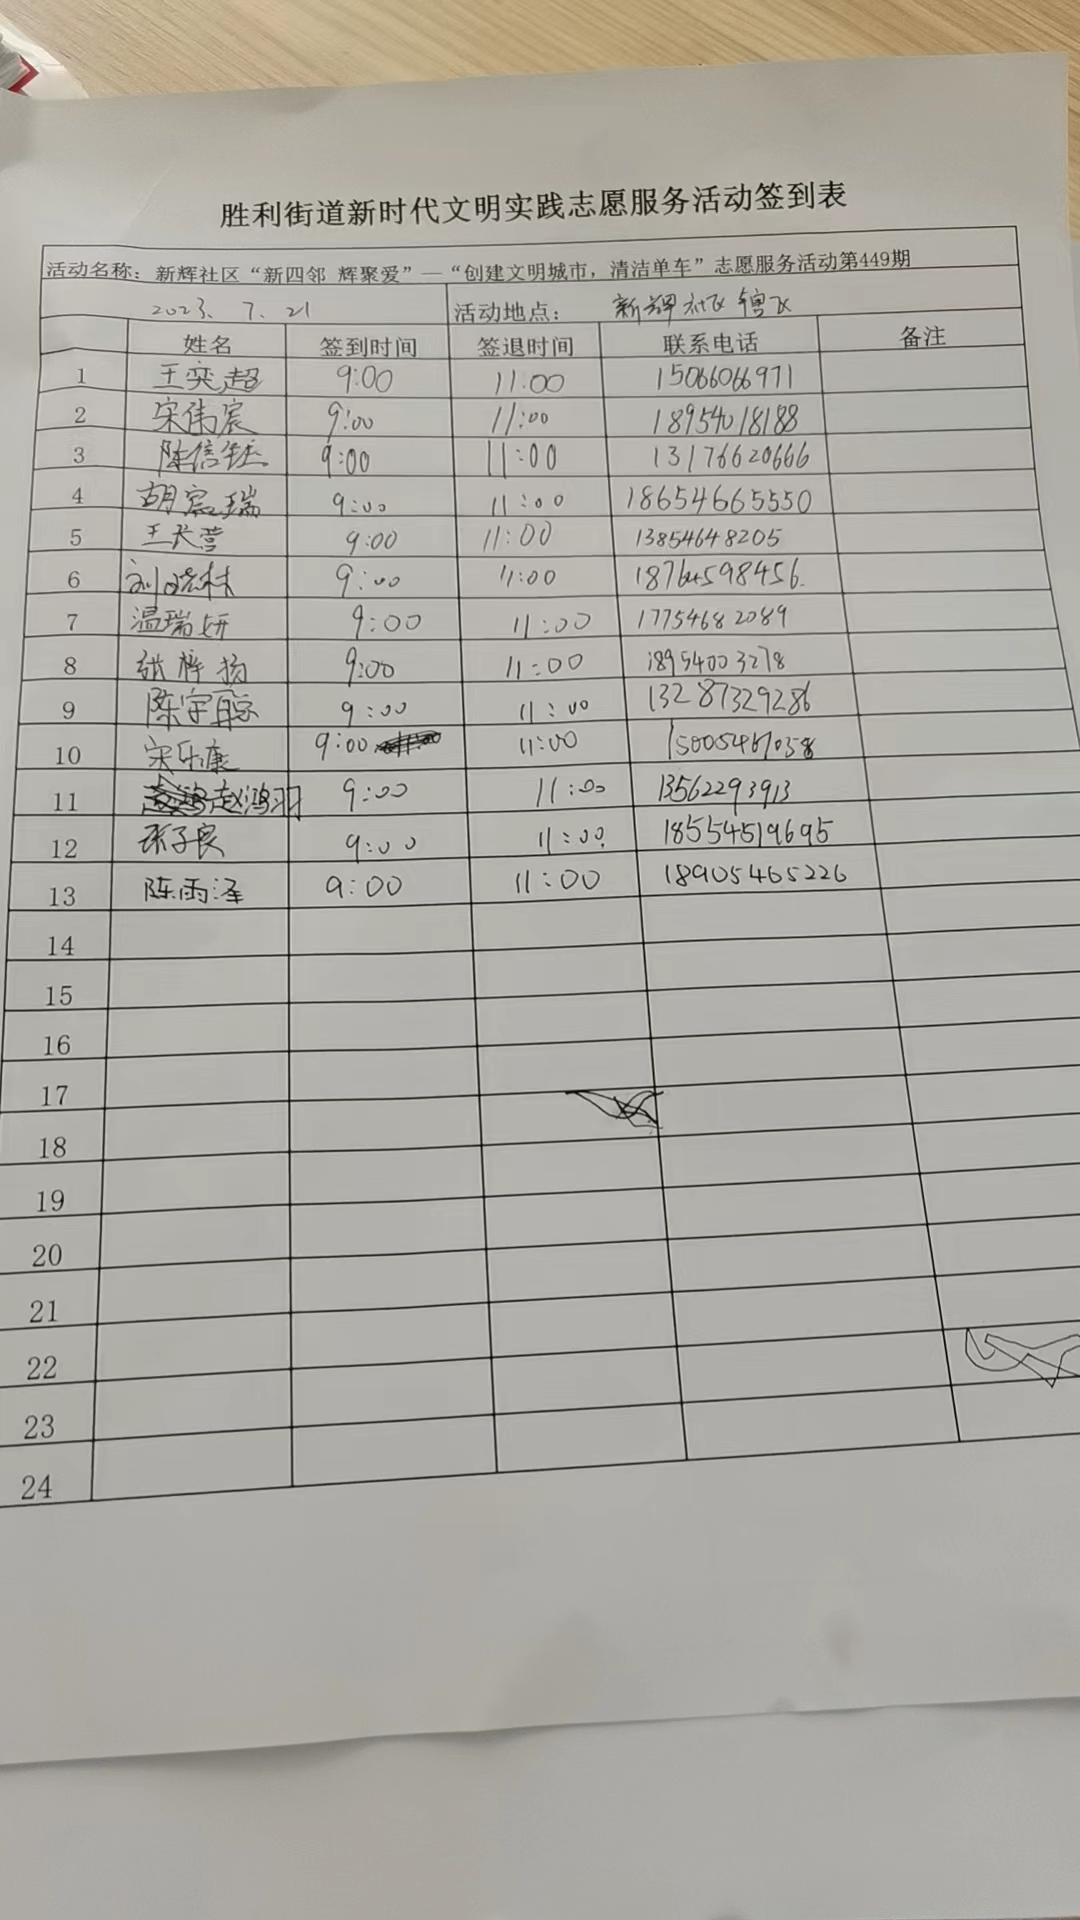 胜利街道新时代文明实践志愿服务活动签到表
活动名称：新辉社区“新四邻 辉聚爱”—“创建文明城市，清洁单车”志愿服务活动第449期
2023. 7. 21 活动地点： 新辉社区辖区
姓名 签到时间 签退时间 联系电话 备注
1 王奕超 9:00 11:00 15066066971
2 宋伟宸 9:00 11:00 18954018188
3 陈信钰 9:00 11:00 13176620666
4 胡宸瑞 9:00 11:00 18654665550
5 王长营 9:00 11:00 13854648205
6 刘晓林 9:00 11:00 18764598456.
7 温瑞妍 9:00 11:00 17754682089
8 张梓扬 9:00 11:00 18954003278
9 陈宇聪 9:00 11:00 13287329286
10 宋乐康 9:00 11:00 15005461058
11 赵鸿羽 9:00 11:00 13562293913
12 张子良 9:00 11:00 18554519695
13 陈雨泽 9:00 11:00 18905465226
14
15
16
17
18
19
20
21
22
23
24